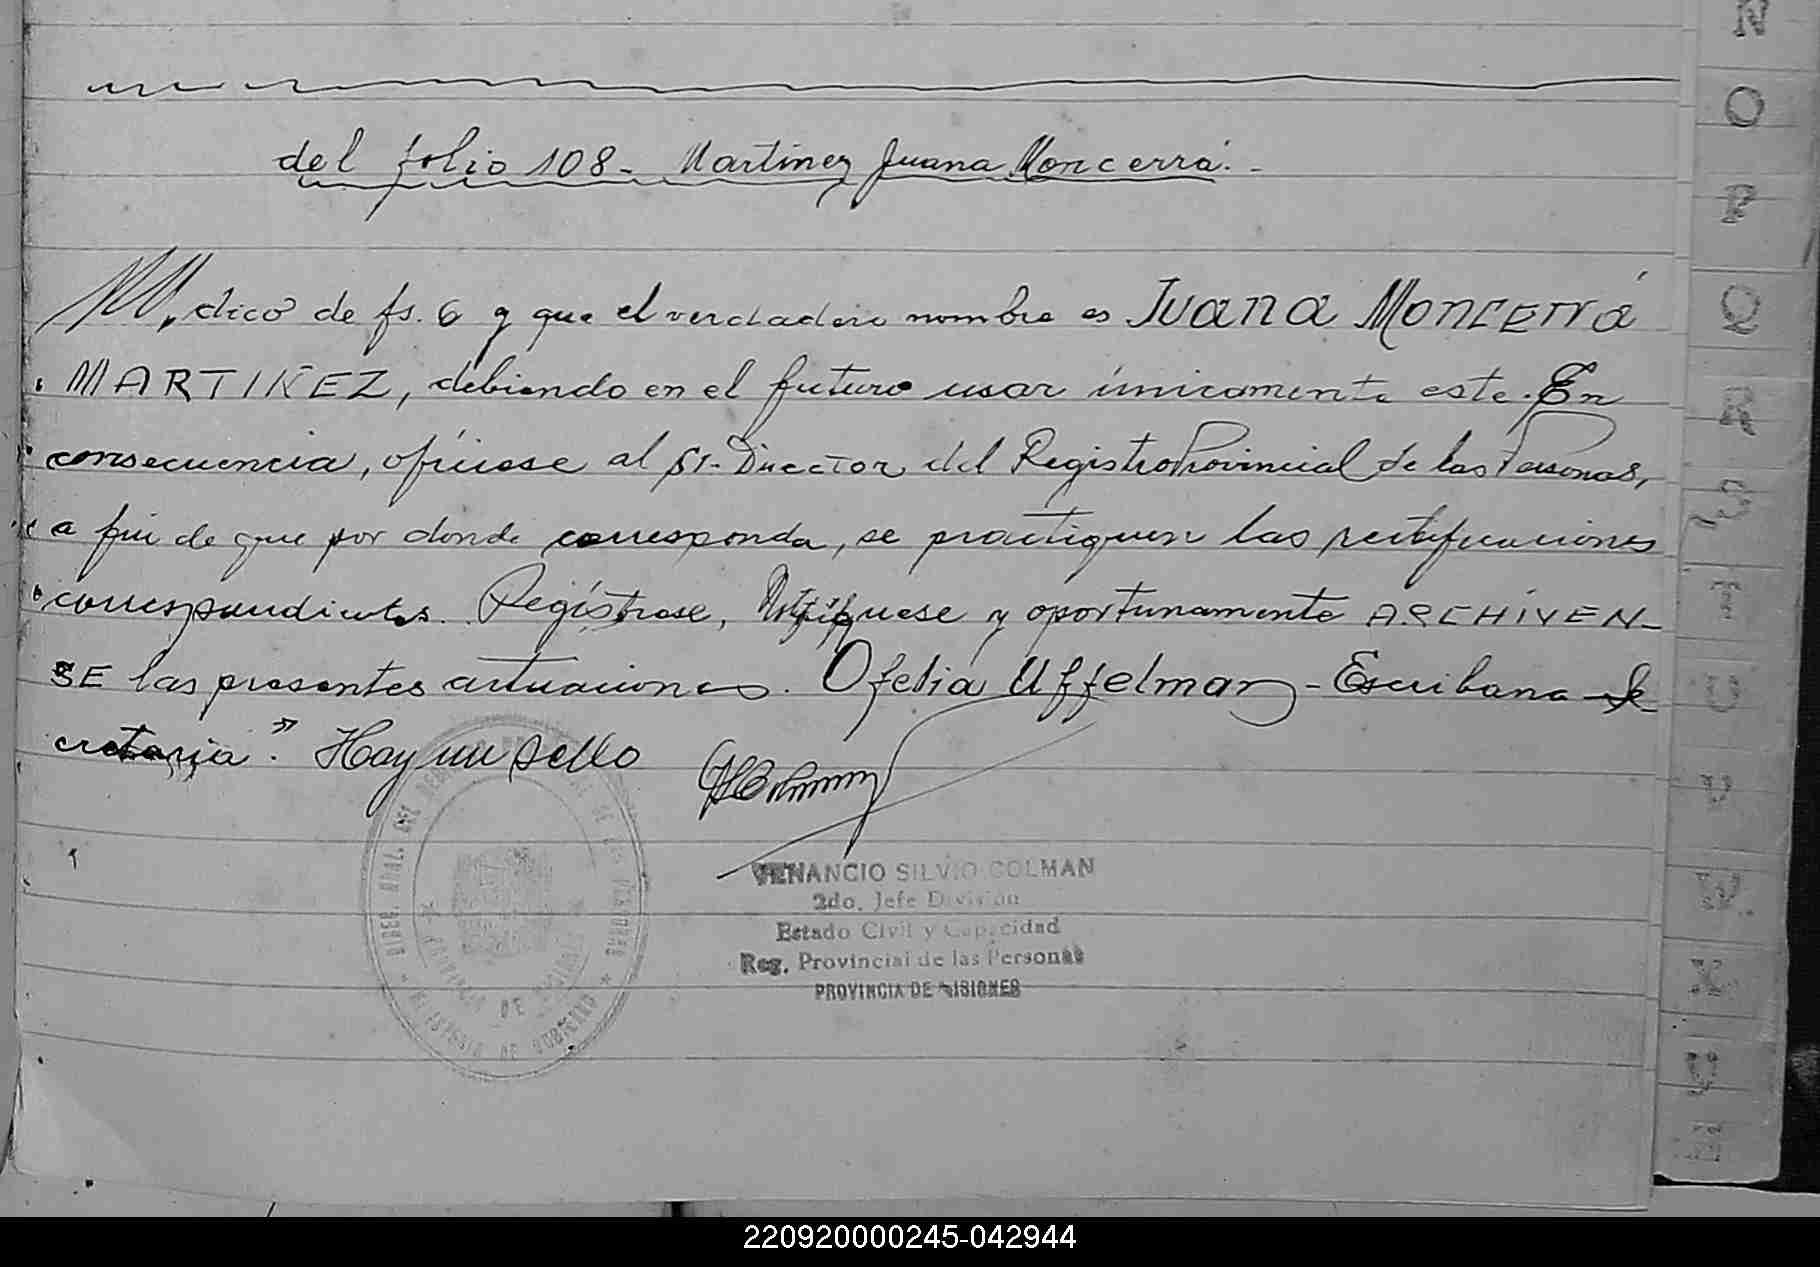 del folio 108- Martinez Juana Moncerrá.-
M. dico de fs. 6 y que el verdadero nombre es Juana Moncerrá
MARTINEZ, debiendo en el futuro usar únicamente este. En
consecuencia, ofíciese al Sr. Director del Registro Provincial de las Personas,
a fin de que por donde corresponda, se practiquen las rectificaciones
correspondientes. Regístrese, Notifíquese y oportunamente ARCHÍVEN-
SE las presentes actuaciones. Ofelia Uffelman - Escribana Se
cretaria". Hay un sello
VENANCIO SILVIO COLMAN
2do. Jefe División
Estado Civil y Capacidad
Reg. Provincial de las Personas
PROVINCIA DE MISIONES
DIREC. GRAL. DEL REGISTRO DE LAS PERSONAS
PROVINCIA DE MISIONES
MINISTERIO DE GOBIERNO
N
O
P
Q
R
S
T
U
V
W
X
Y
Z
220920000245-042944